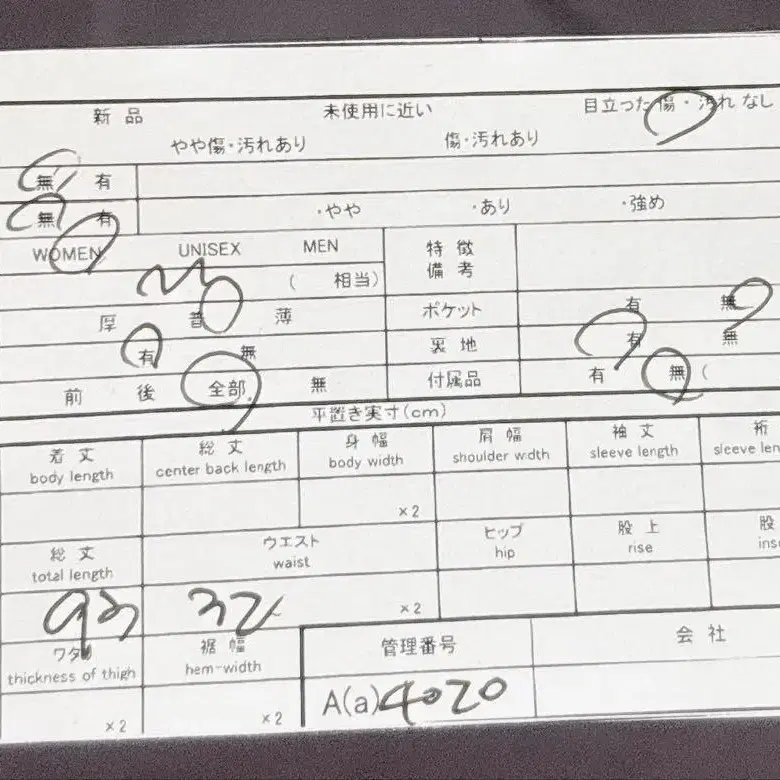 新品 未使用に近い 目立った傷・汚れなし
やや傷・汚れあり 傷・汚れあり
無 有
無 有 ・やや ・あり ・強め
WOMEN UNISEX MEN 特徴
備考
M ( 相当)
厚 普 薄 ポケット 有 無
有 無 裏地 有 無
前 後 全部 無 付属品 有 無 (
平置き実寸(cm)
着丈 総丈 身幅 肩幅 袖丈 裄
body length center back length body width shoulder width sleeve length sleeve len
×2
総丈 ウエスト ヒップ 股上 股
total length waist hip rise ins
93 32 ×2
ワタリ 裾幅 管理番号 会社
thickness of thigh hem-width
×2 ×2 A(a)4020